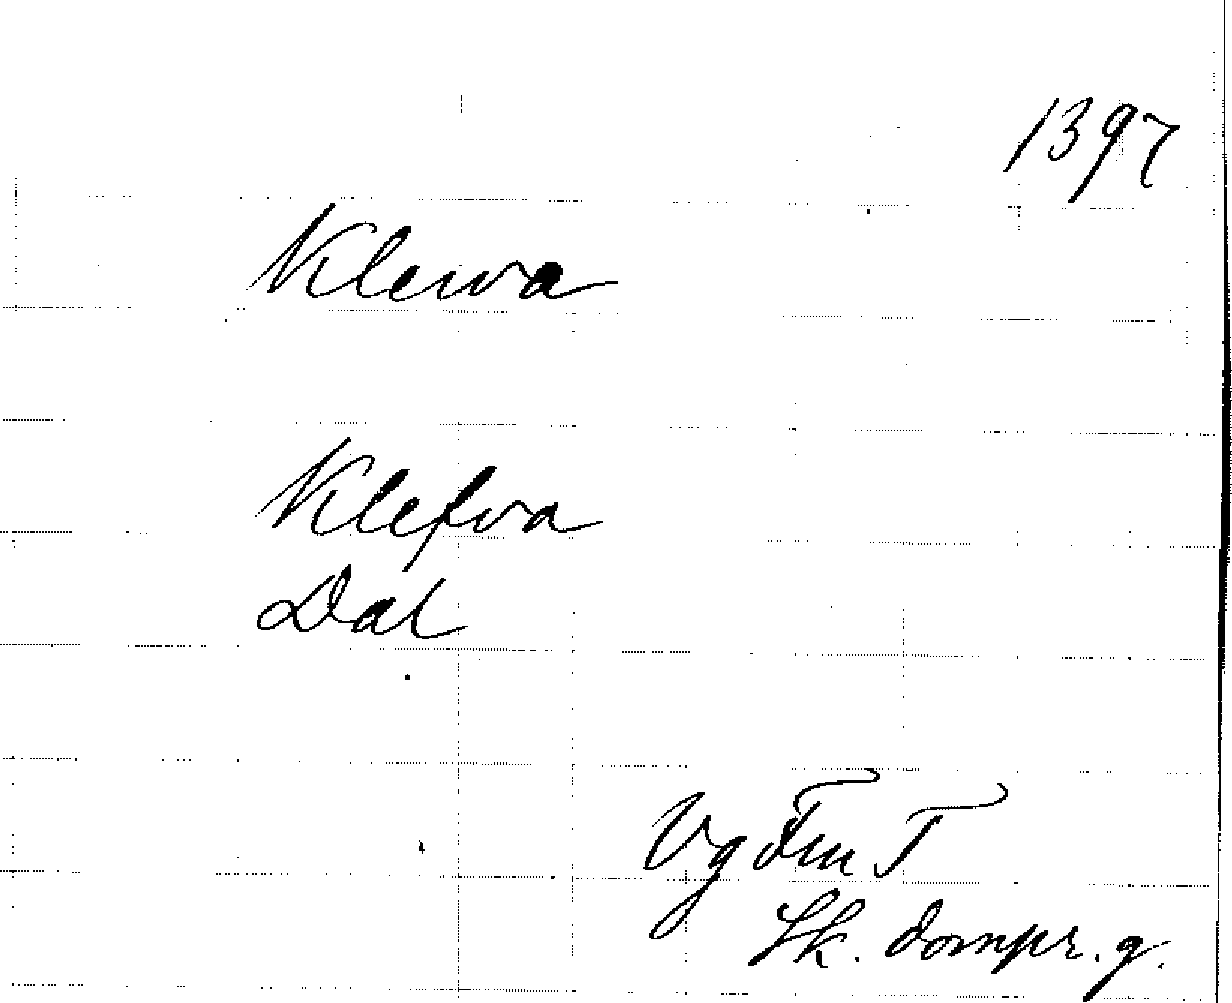 1397
Klewa
Klefva
Dal
Vg Fm T
Sk. dompr. g.